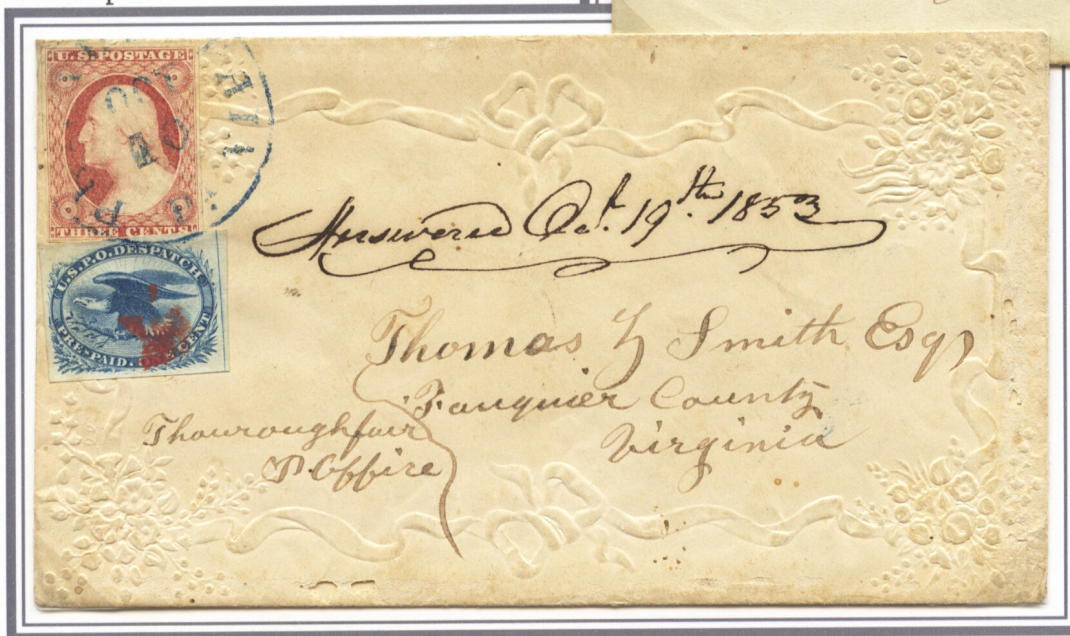 U.S. POSTAGE
THREE CENTS
OCT
10
U.S.P.O. DESPATCH
PRE-PAID. ONE CENT
Answered Oct. 19th. 1853
Thomas Smith Esqr
Fauquier County
Virginia
Thouroughfair
P. Offire